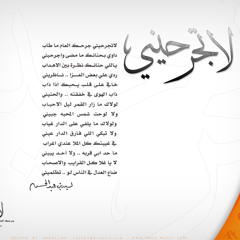 لا تجرحيني
لاتجرحيني جرحك العام ما طاب
داوي بحنانك ما مضى واجرحيني
ياللي حنانك نظرة بين الاهداب
ردي على بعض العمر .. ناظريني
خافي على قلب يحبك اذا ذاب
ذاب الهوى في خفقته .. والحنيني
لولاك ما زار القمر ليل الاحباب
ولا لوحت شمس المحبه جبيني
ولولاك ما يلقى على الدار غياب
ولا تبكي اللي فارق الدار عيني
في غيبتك كل الملا عندي اغراب
ما حد ابي قربه .. ولا احد يبيني
لا يا غلا كل القرايب والاصحاب
ضاع العدل في الناس لو .. تظلميني